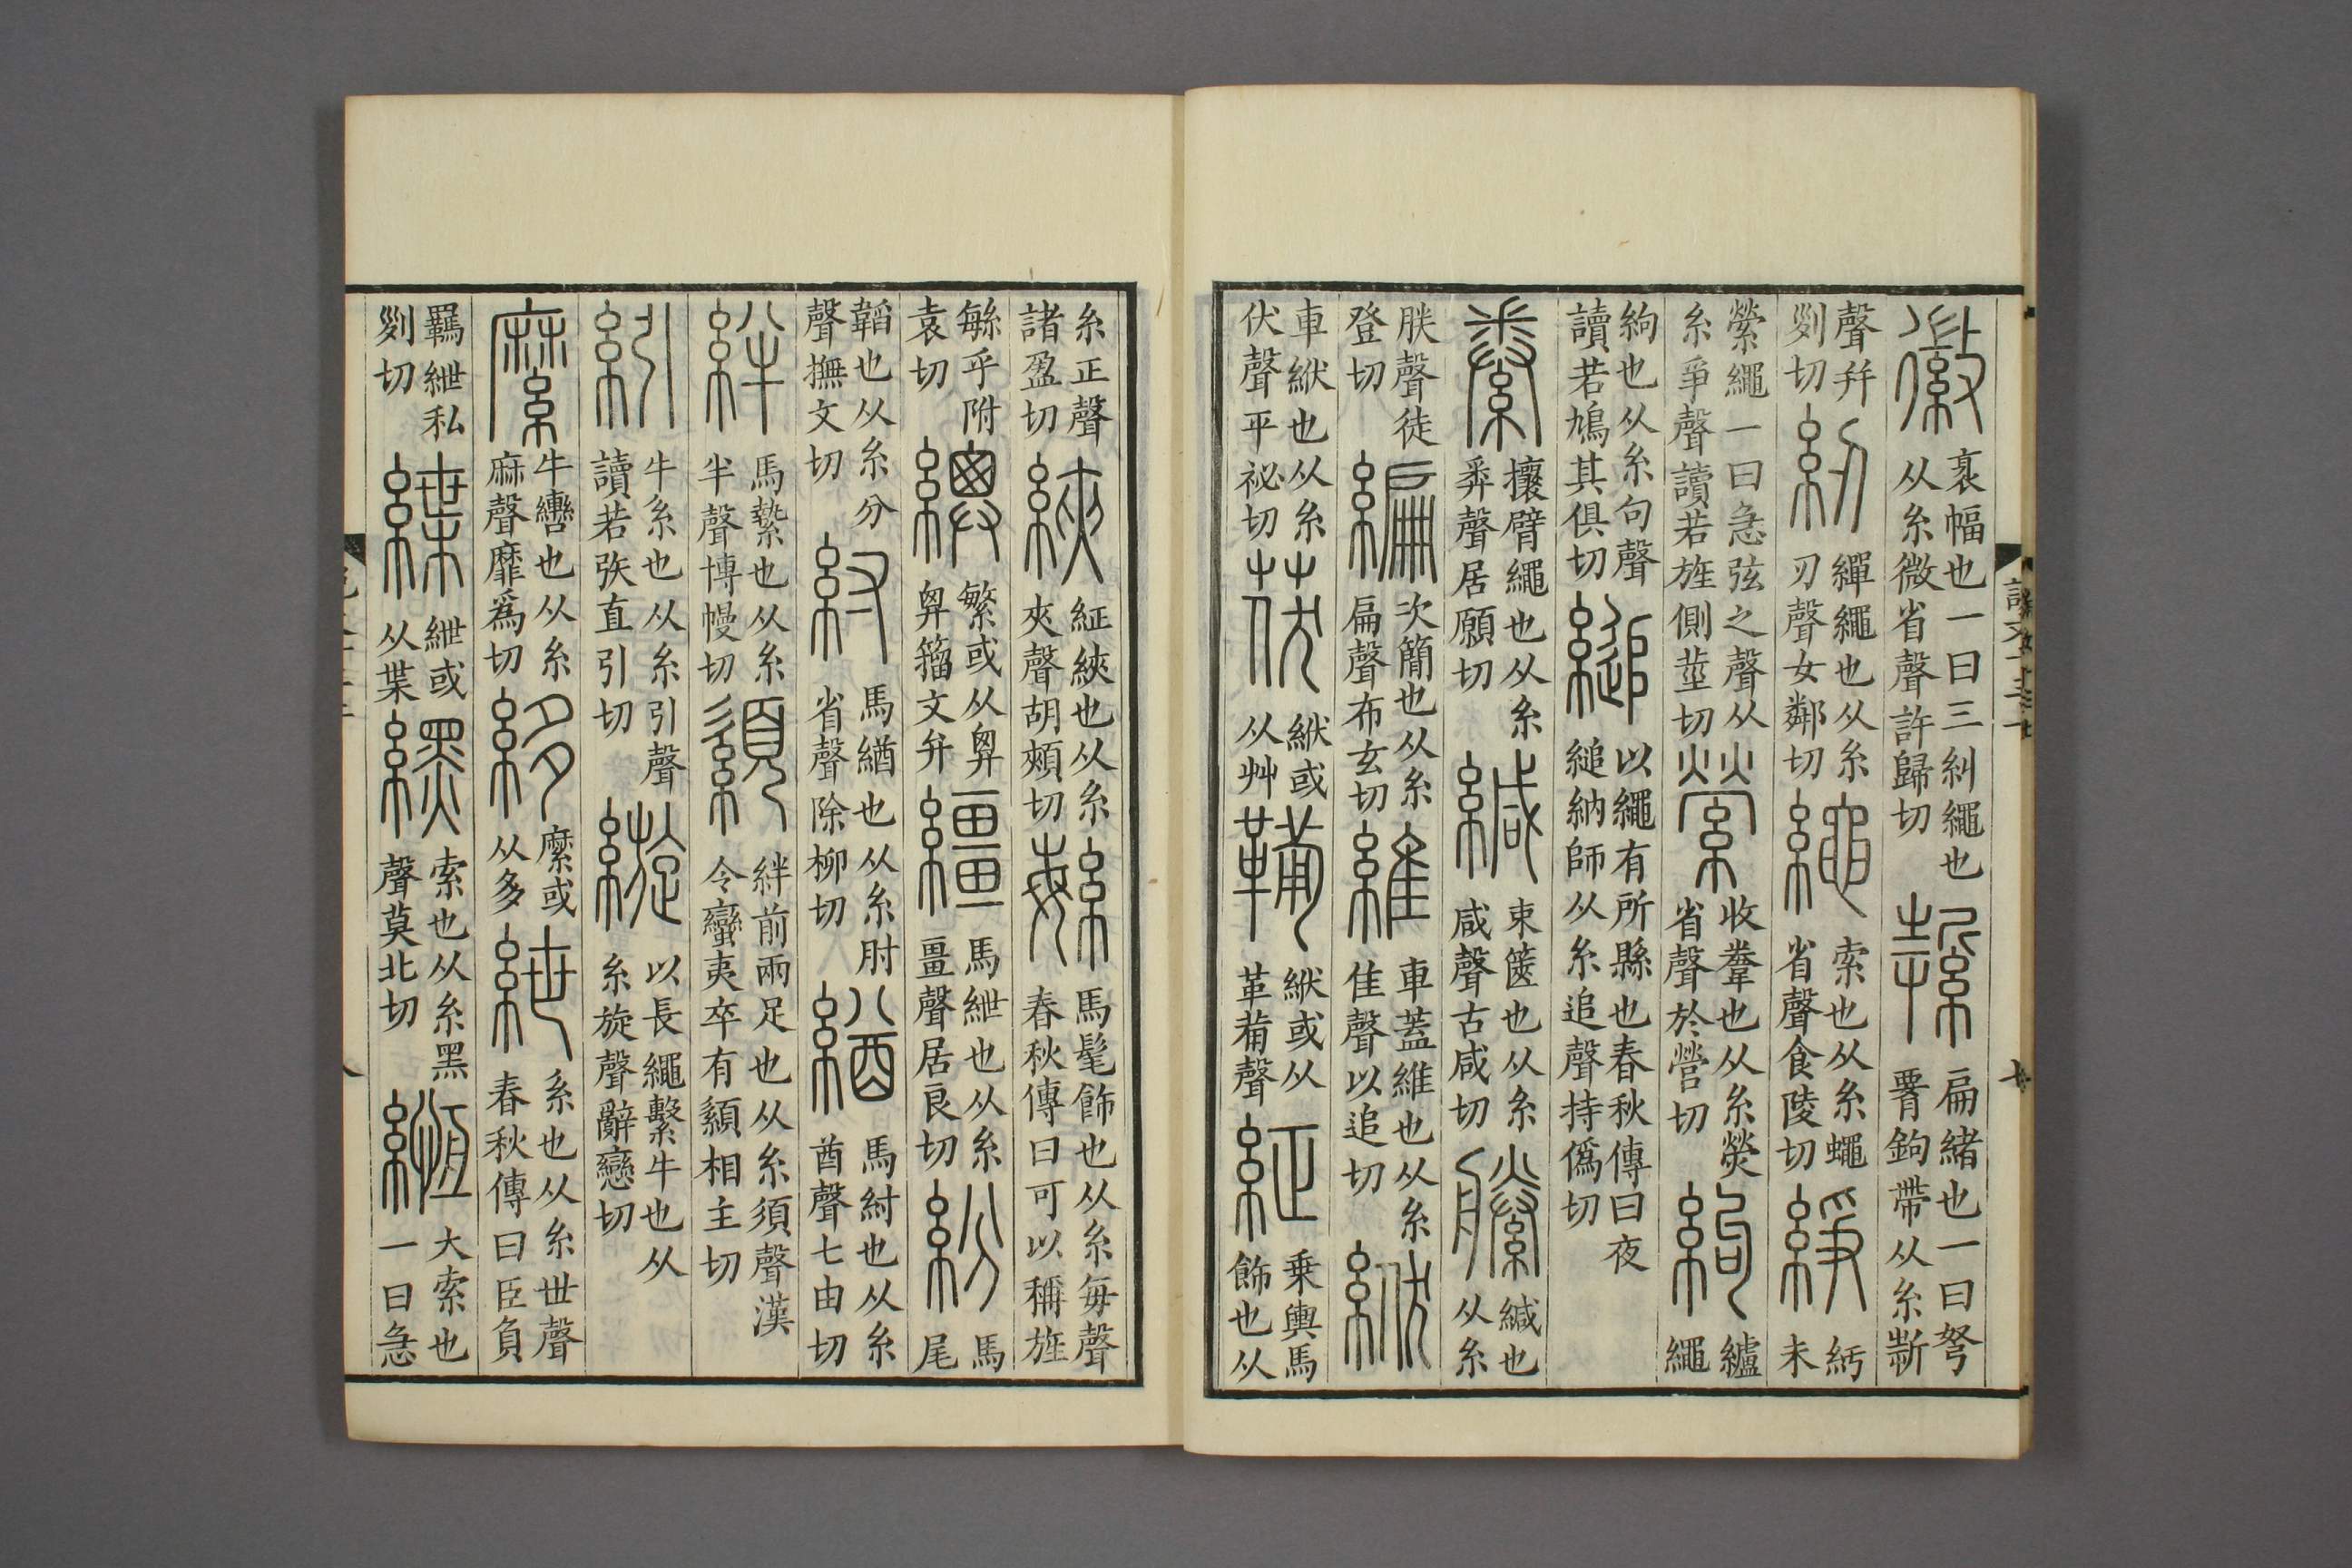 徽 衺幅也一曰三糾繩也从糸微省聲許歸切 𦂳 扁緒也一曰弩䚢鉤帶从糸㪿
聲幷列切 紉 繟繩也从糸刃聲女鄰切 繩 索也从糸蠅省聲食陵切 綪 紆未
縈繩一曰急弦之聲从糸爭聲讀若旌側莖切 縈 收韏也从糸熒省聲於營切 絇 纑繩
絇也从糸句聲讀若鳩其俱切 縋 以繩有所縣也春秋傳曰夜縋納師从糸追聲持僞切
絭 攘臂繩也从糸𢍏聲居願切 緘 束篋也从糸咸聲古咸切 縢 緘也从糸
朕聲徒登切 編 次簡也从糸扁聲布玄切 維 車蓋維也从糸隹聲以追切 絥
車絥也从糸伏聲平祕切 茯 絥或从艸 鞴 絥或从革𤰇聲 䋊 乗輿馬飾也从
說文十三上 七
糸正聲諸盈切 綊 䋊綊也从糸夾聲胡頰切 緐 馬髦飾也从糸每聲春秋傳曰可以稱旌
緐乎附袁切 𦆥 緐或从𢍍𢍍籒文弁 繮 馬紲也从糸畺聲居良切 紛 馬尾
韜也从糸分聲撫文切 紂 馬緧也从糸肘省聲除柳切 緧 馬紂也从糸酋聲七由切
絆 馬縶也从糸半聲博幔切 䋶 絆前兩足也从糸須聲漢令蠻夷卒有䋶相主切
紖 牛系也从糸引聲讀若矤直引切 縼 以長繩繫牛也从糸旋聲辭戀切
縻 牛轡也从糸麻聲靡爲切 䋾 縻或从多 紲 系也从糸世聲春秋傳曰臣負
羈紲私列切 緤 紲或从枼 纆 索也从糸黑聲莫北切 縆 大索也一曰急